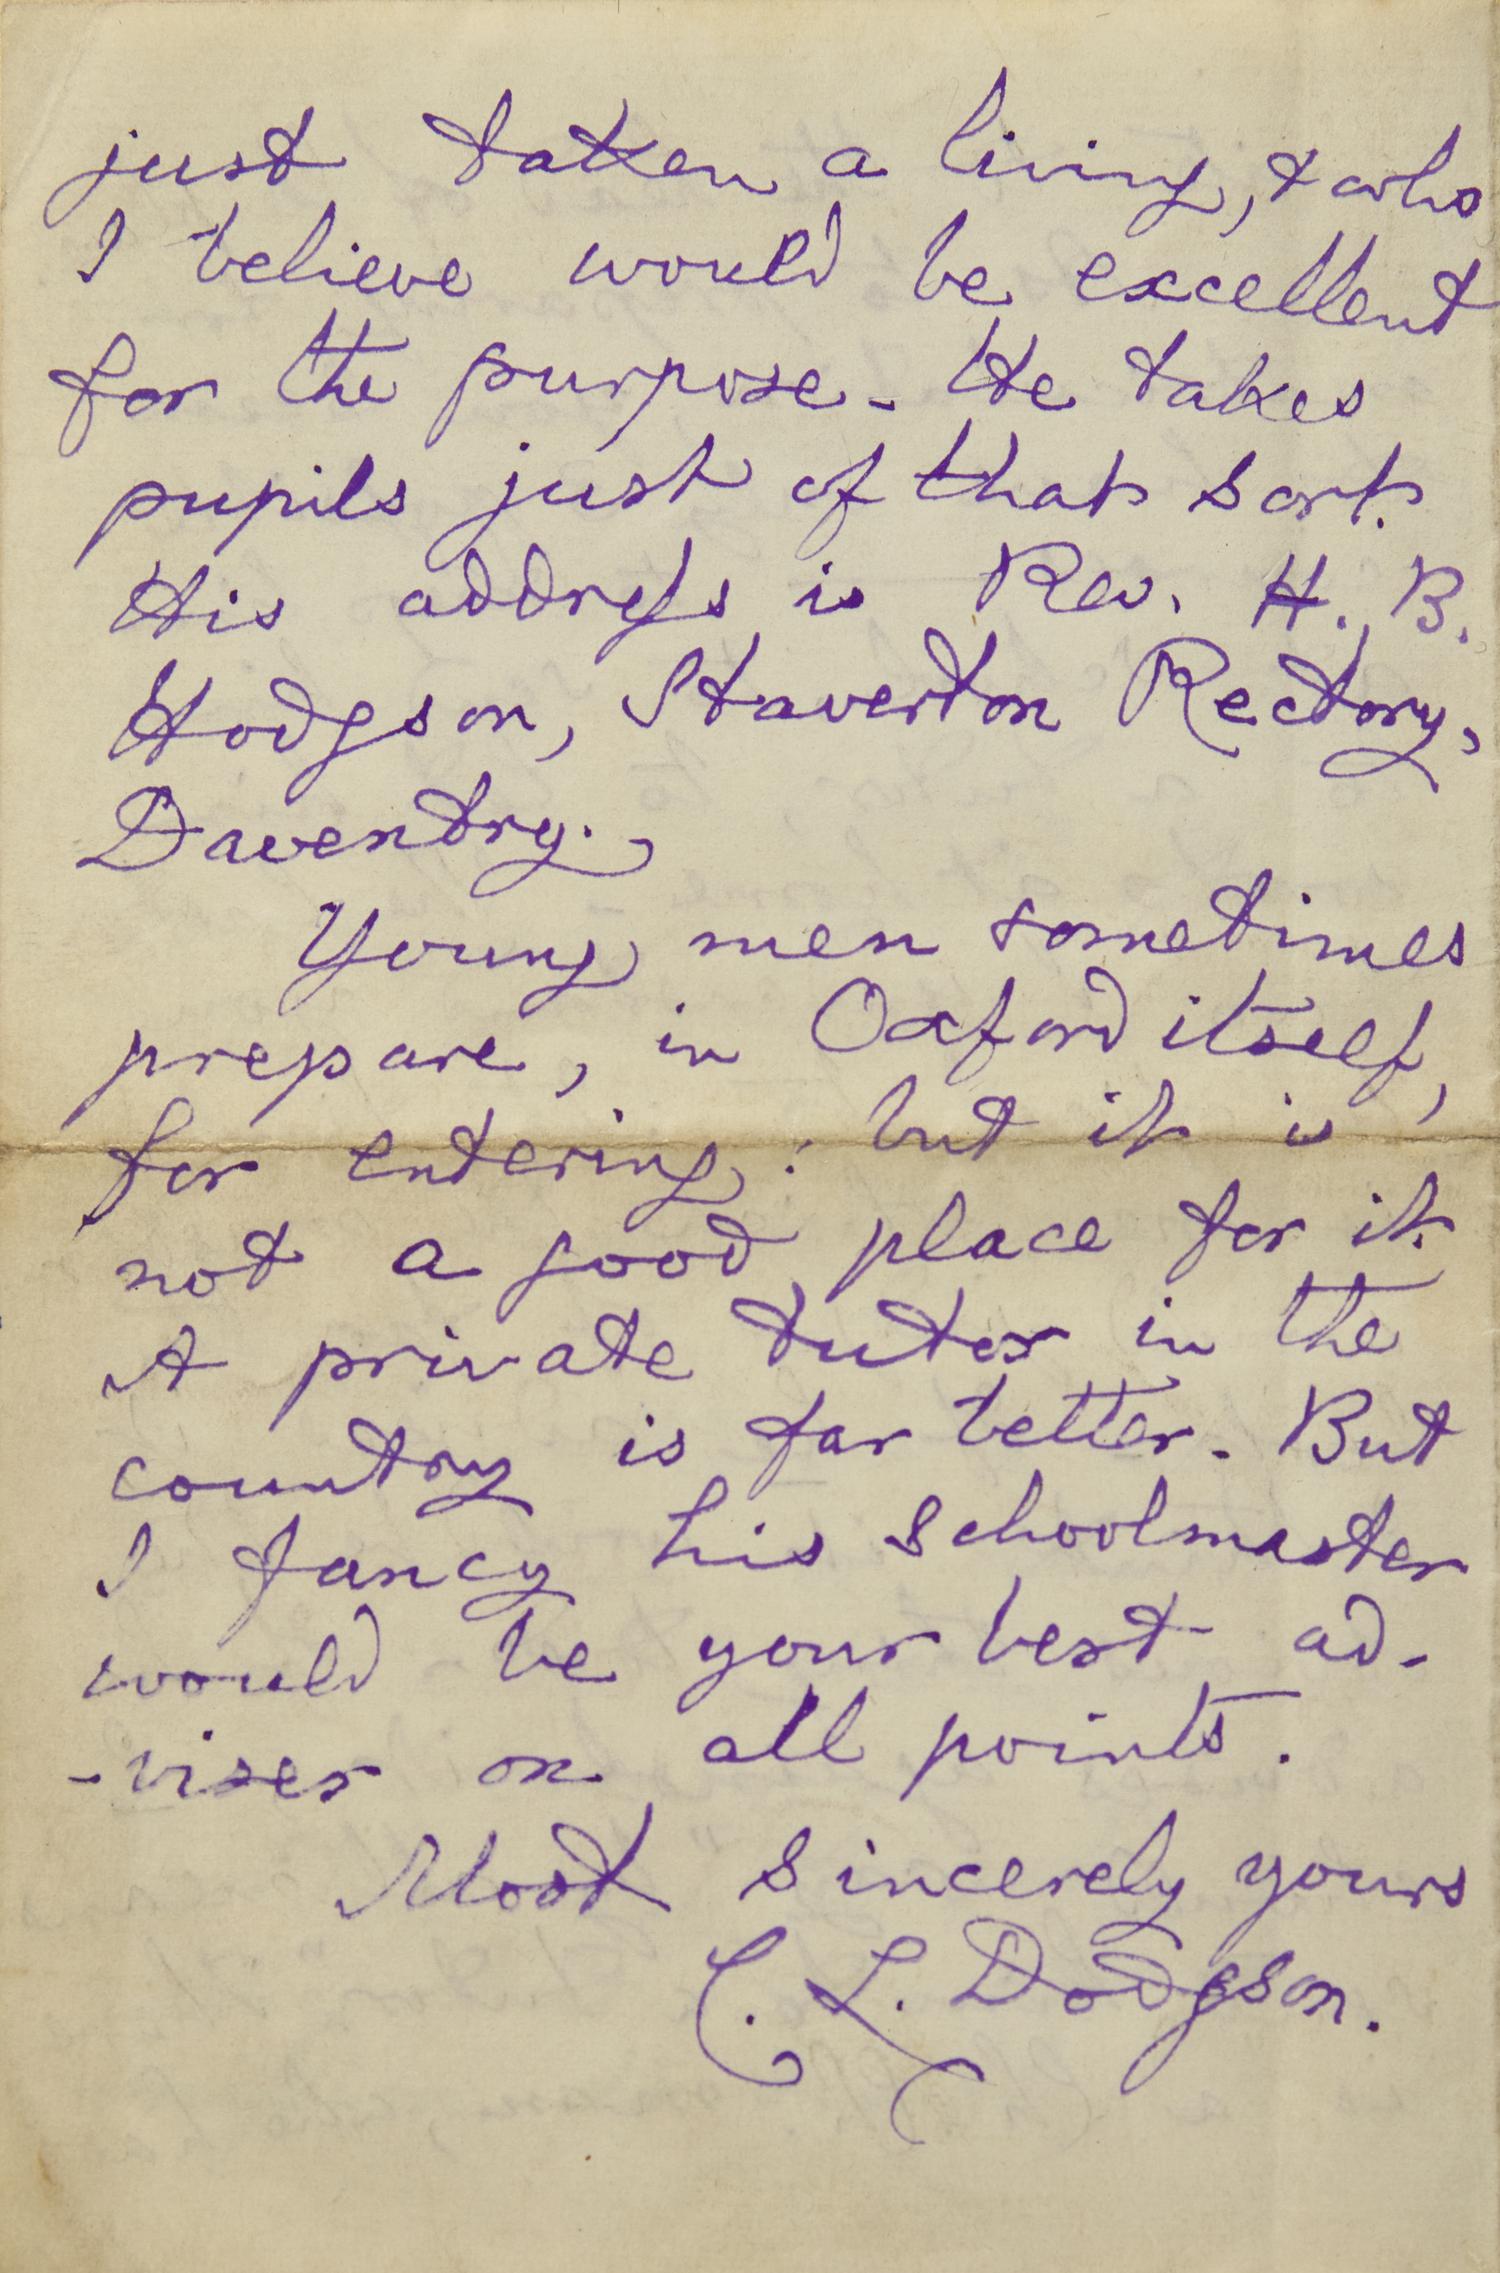 just taken a living, & who
I believe would be excellent
for the purpose. He takes
pupils just of that sort.
His address is Rev. H. B.
Hodgson, Staverton Rectory,
Daventry.
Young men sometimes
prepare, in Oxford itself,
for entering: but it is
not a good place for it.
A private tutor in the
country is far better. But
I fancy his schoolmaster
would be your best ad-
-viser on all points.
Most sincerely yours
C. L. Dodgson.